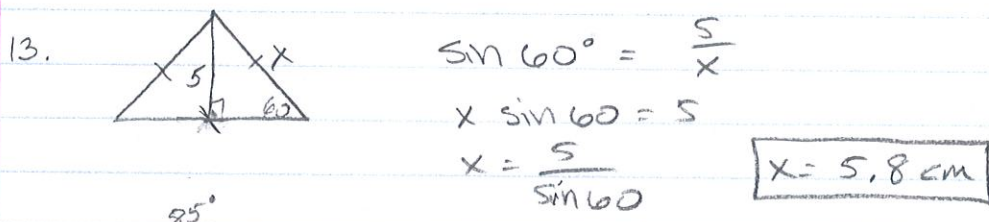 13.
5 x
60
sin 60° = 5/x
x sin 60 = 5
x = 5/sin 60
x = 5.8 cm
85°